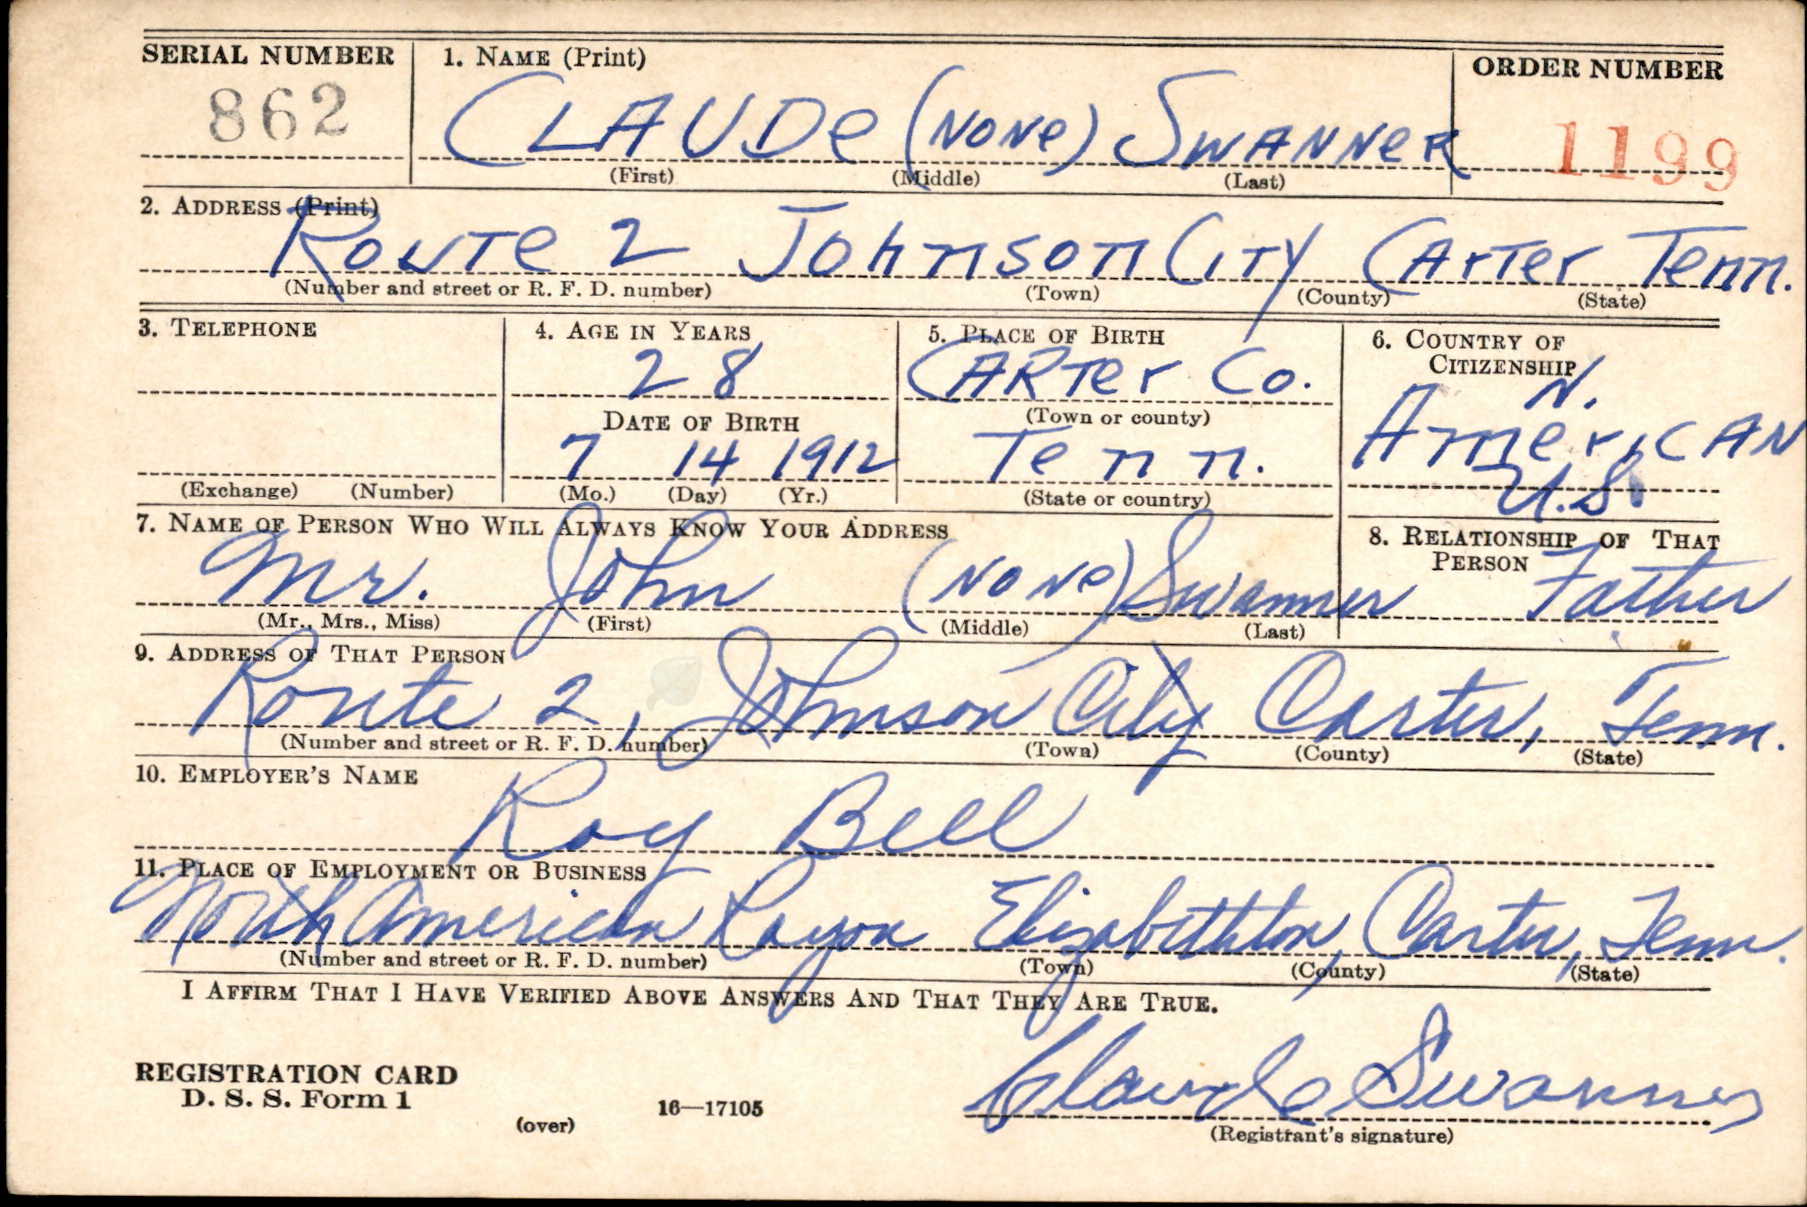 SERIAL NUMBER 1. NAME (Print) ORDER NUMBER
862 CLAUDe (NoNe) SWANNeR 1199
(First) (Middle) (Last)
2. ADDRESS (Print)
RouTe 2 Johnson CiTY CArTer Tenn.
(Number and street or R. F. D. number) (Town) (County) (State)
3. TELEPHONE 4. AGE IN YEARS 5. PLACE OF BIRTH 6. COUNTRY OF CITIZENSHIP
28 CARTer Co. N.
DATE OF BIRTH (Town or county) AmericAN
7 14 1912 Tenn. U.S.
(Exchange) (Number) (Mo.) (Day) (Yr.) (State or country)
7. NAME OF PERSON WHO WILL ALWAYS KNOW YOUR ADDRESS 8. RELATIONSHIP OF THAT PERSON
Mr. John (NoNe) Swanner Father
(Mr., Mrs., Miss) (First) (Middle) (Last)
9. ADDRESS OF THAT PERSON
Route 2, Johnson City Carter, Tenn.
(Number and street or R. F. D. number) (Town) (County) (State)
10. EMPLOYER'S NAME
Roy Bell
11. PLACE OF EMPLOYMENT OR BUSINESS
North American Rayon Elizabethton, Carter, Tenn.
(Number and street or R. F. D. number) (Town) (County) (State)
I AFFIRM THAT I HAVE VERIFIED ABOVE ANSWERS AND THAT THEY ARE TRUE.
REGISTRATION CARD Claude Swanner
D. S. S. Form 1 (over) 16—17105 (Registrant's signature)